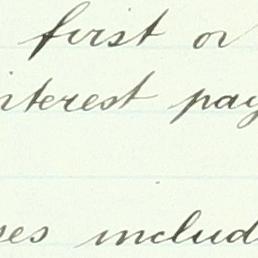 first or
interest pay
ses includ